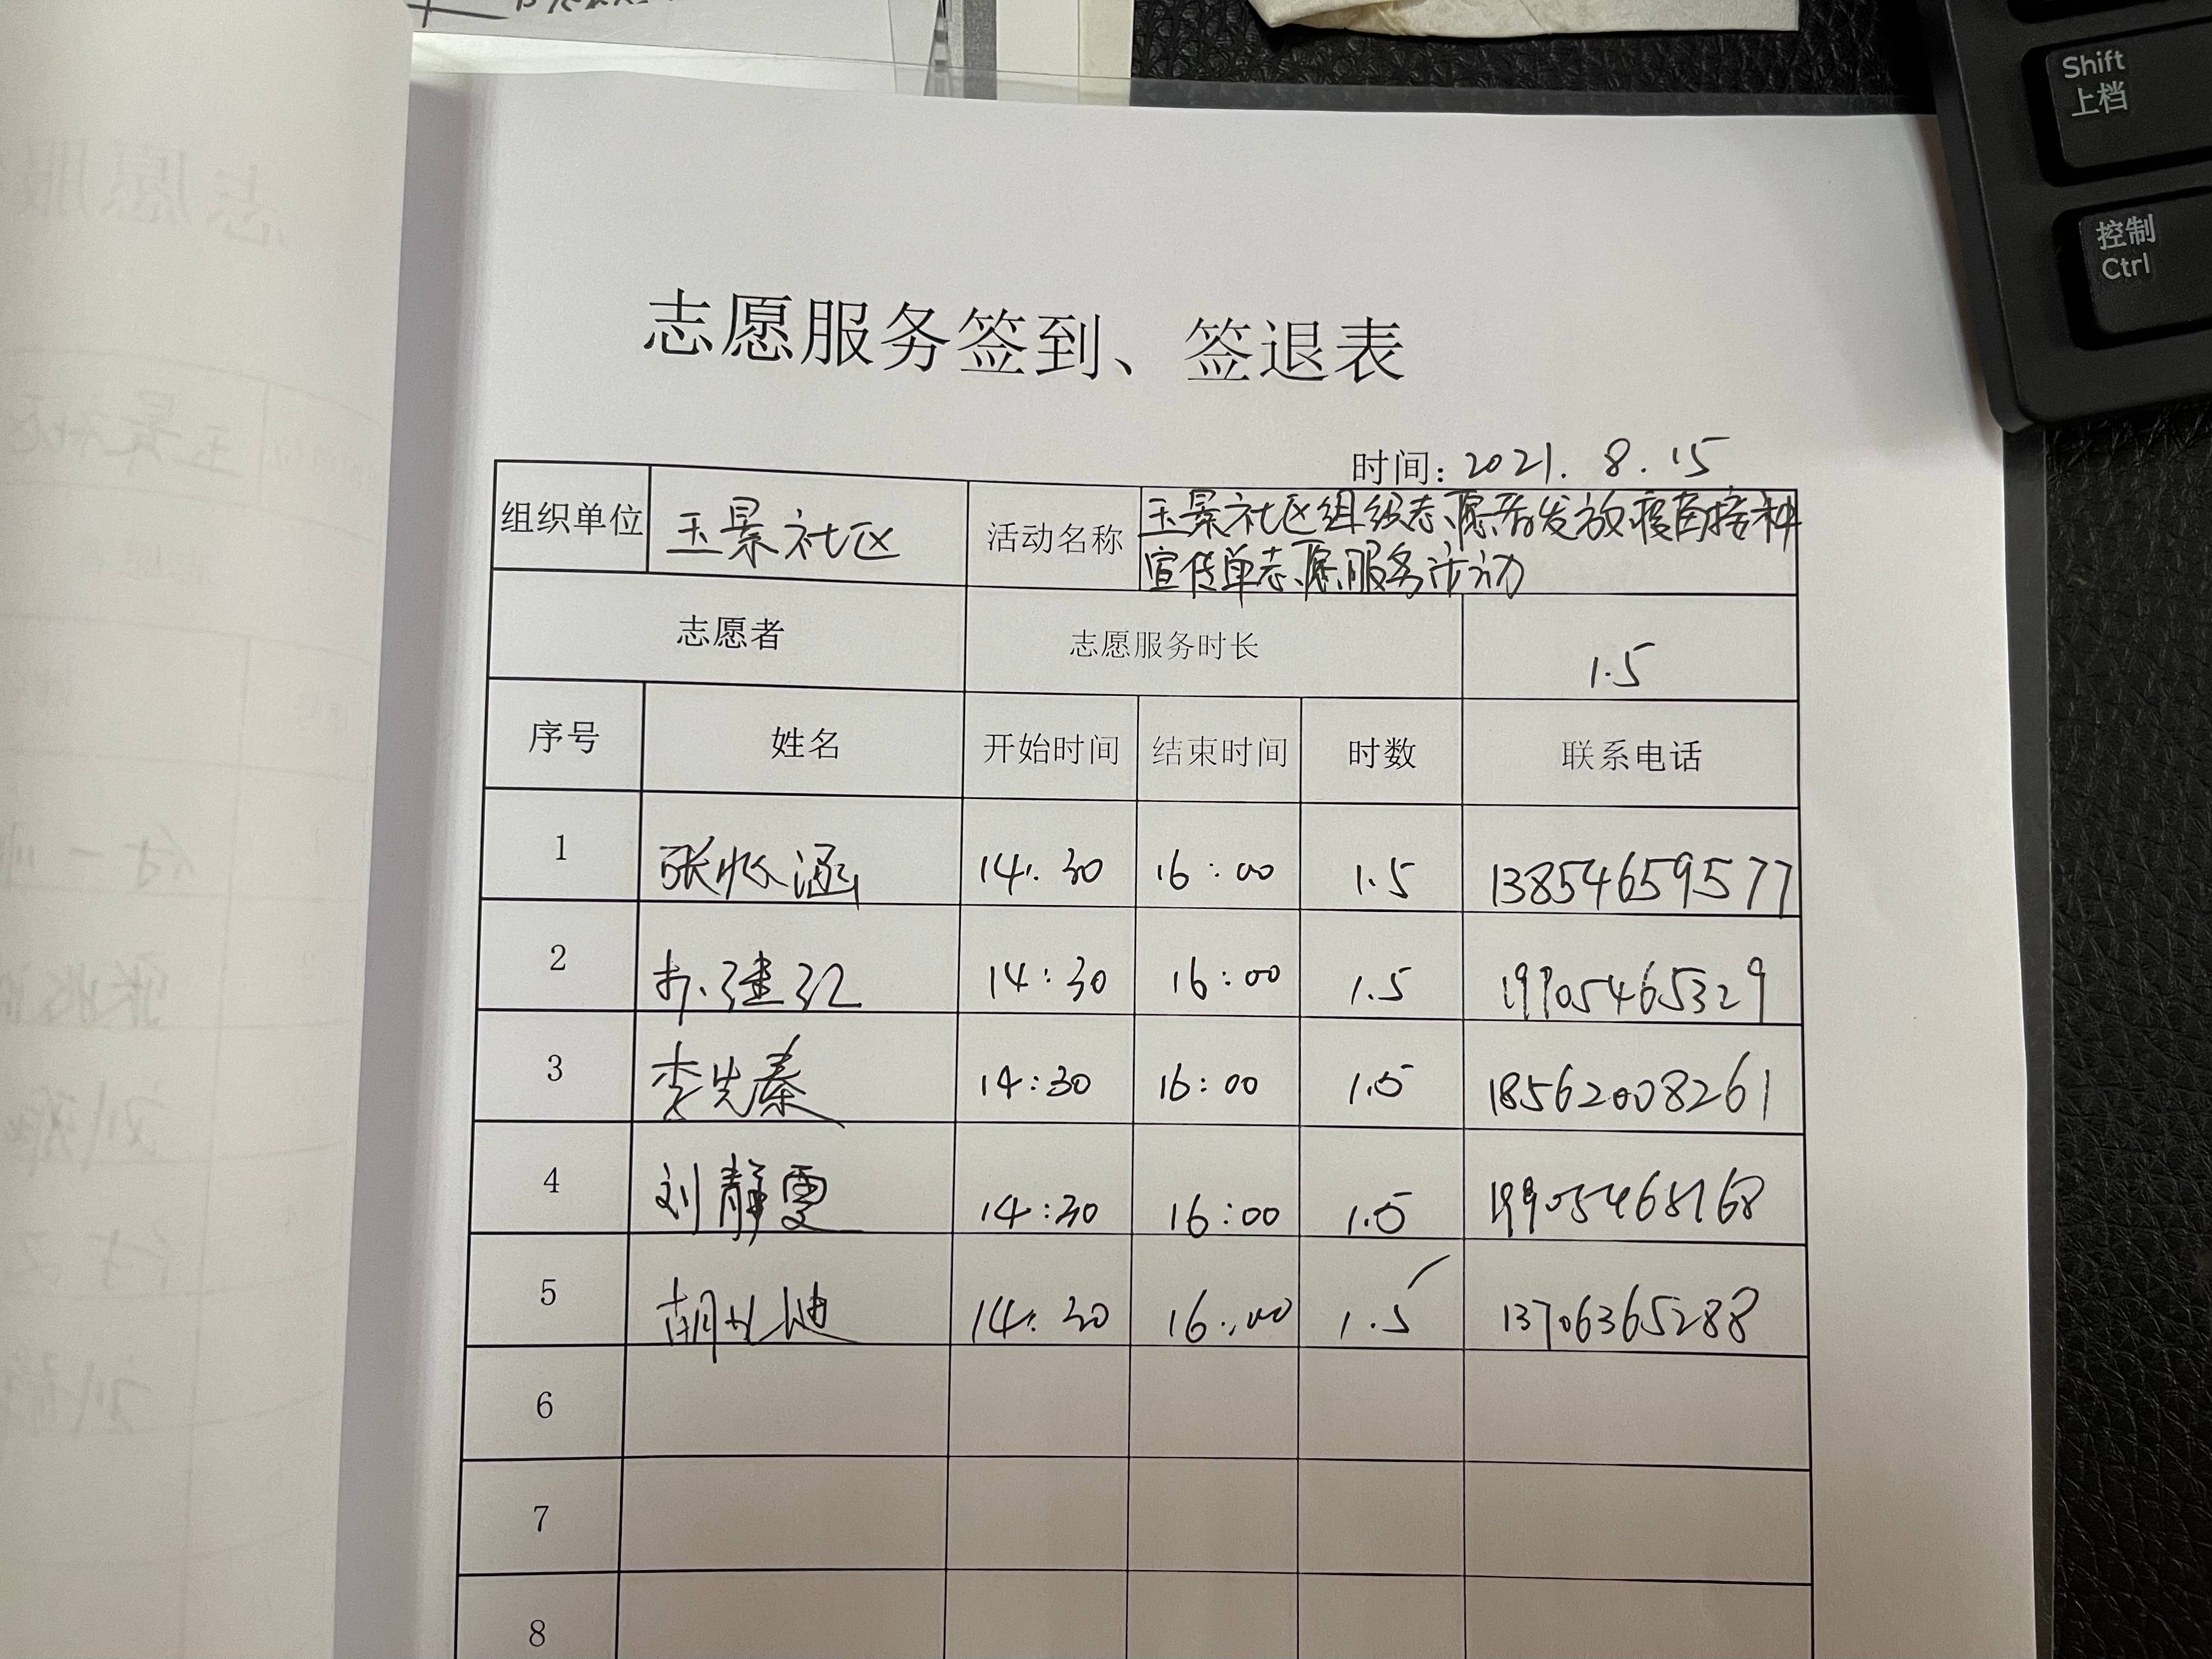 Shift
上档
控制
Ctrl
志愿服务签到、签退表
时间：2021.8.15
组织单位 玉景社区 活动名称 玉景社区组织志愿者发放疫苗接种
宣传单志愿服务活动
志愿者 志愿服务时长 1.5
序号 姓名 开始时间 结束时间 时数 联系电话
1 张 涵 14:30 16:00 1.5 13854659577
2 14:30 16:00 1.5 19905465329
3 李先秦 14:30 16:00 1.5 18562008261
4 刘静雯 14:30 16:00 1.5 19905465168
5 胡 迪 14:30 16:00 1.5 13706365288
6
7
8